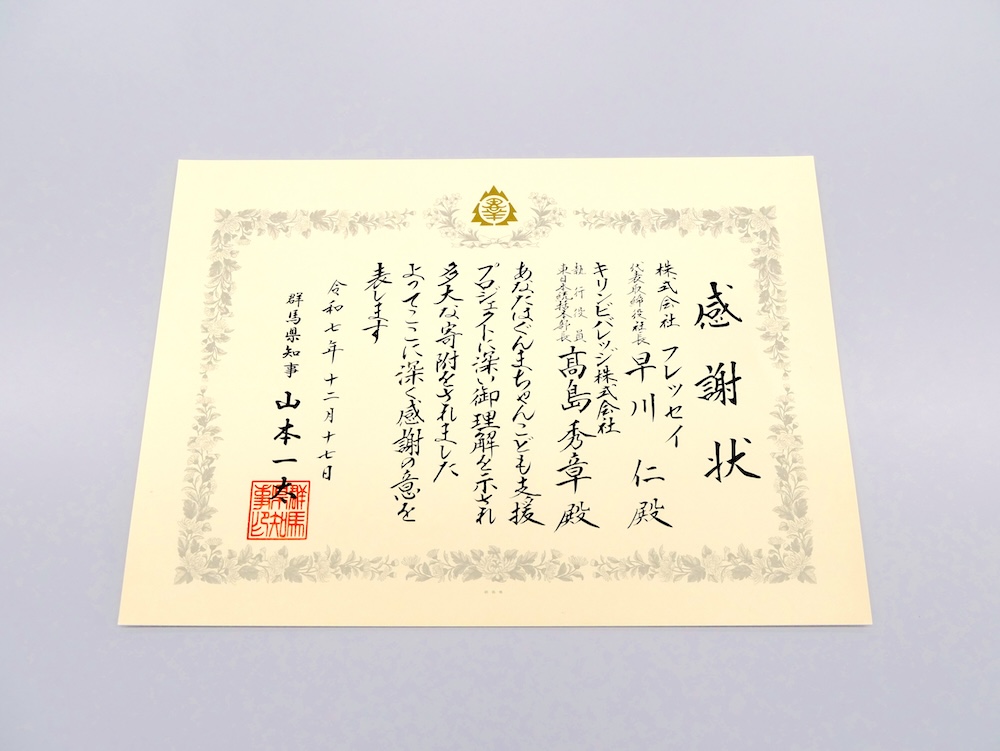 感謝状
株式会社 フレッセイ
代表取締役社長 早川 仁 殿
キリンビバレッジ株式会社
執行役員
東日本統括本部長 髙島秀章 殿
あなたはぐんまちゃんこども支援
プロジェクトに深い御理解を示され
多大な寄附をされました
よってここに深く感謝の意を
表します
令和七年十二月十七日
群馬県知事 山本一太
群馬県知事印